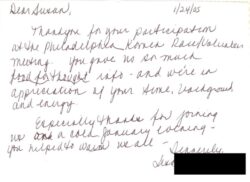 Dear Susan, 1/24/05
Thank you for your participation
at the Philadelphia Korea
meeting. You gave us so much
food for thought info - and we're in
appreciation of your time, background
and energy
Especially thanks for joining
us on a cold January evening -
you helped to warm us all -
Sincerely,